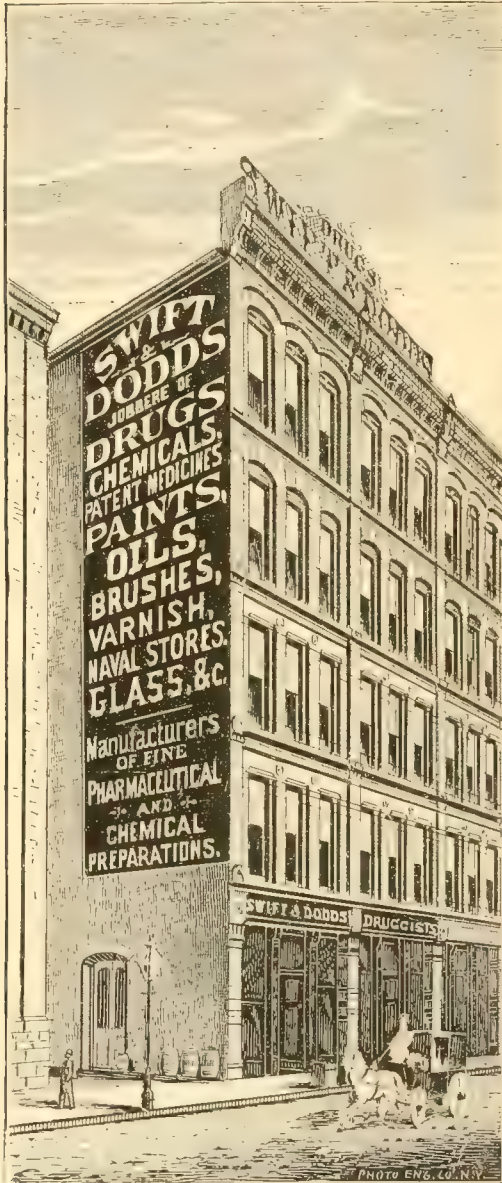 DRUGS
SWIFT & DODDS
SWIFT
&
DODDS
JOBBERS OF
DRUGS
CHEMICALS,
PATENT MEDICINES
PAINTS,
OILS,
BRUSHES,
VARNISH,
NAVAL STORES.
GLASS, &c.
Manufacturers
OF FINE
PHARMACEUTICAL
AND
CHEMICAL
PREPARATIONS.
SWIFT & DODDS DRUGGISTS
PHOTO ENG. CO. N.Y.